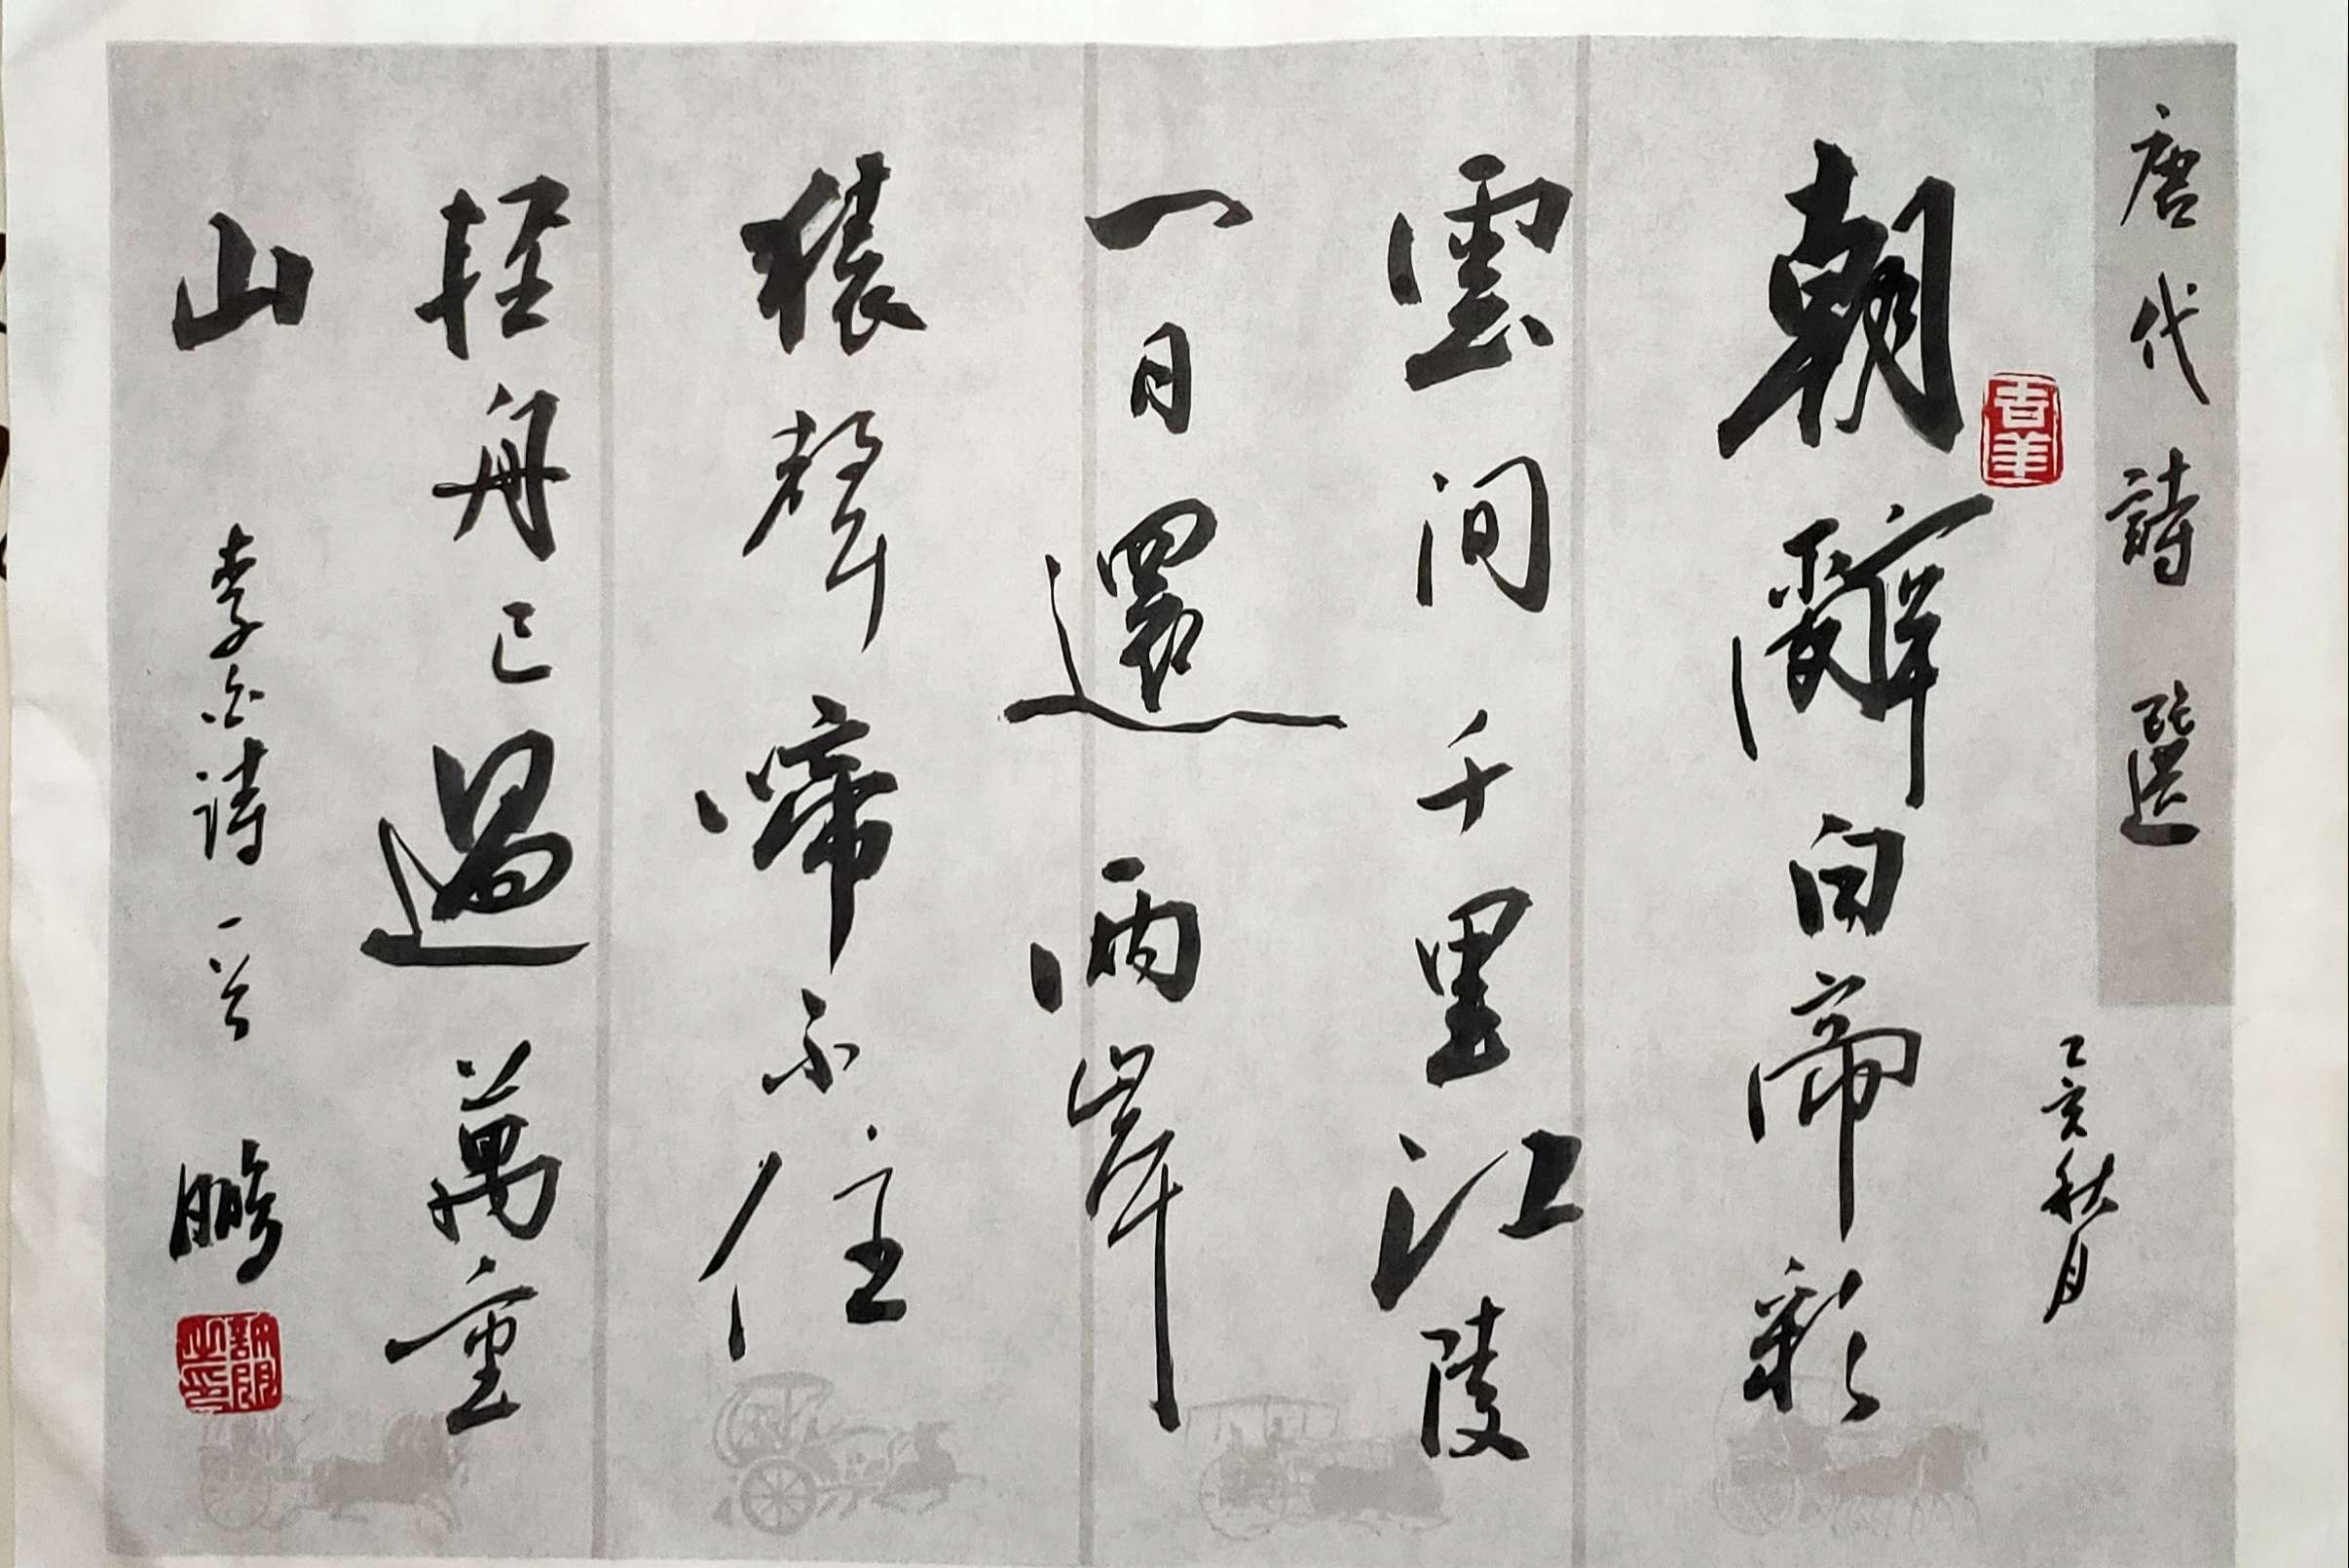 唐代詩選
乙亥秋月
朝辭白帝彩
雲间千里江陵
一日還兩岸
猿聲啼不住
軽舟已過萬重
山
李白诗一首
鵬